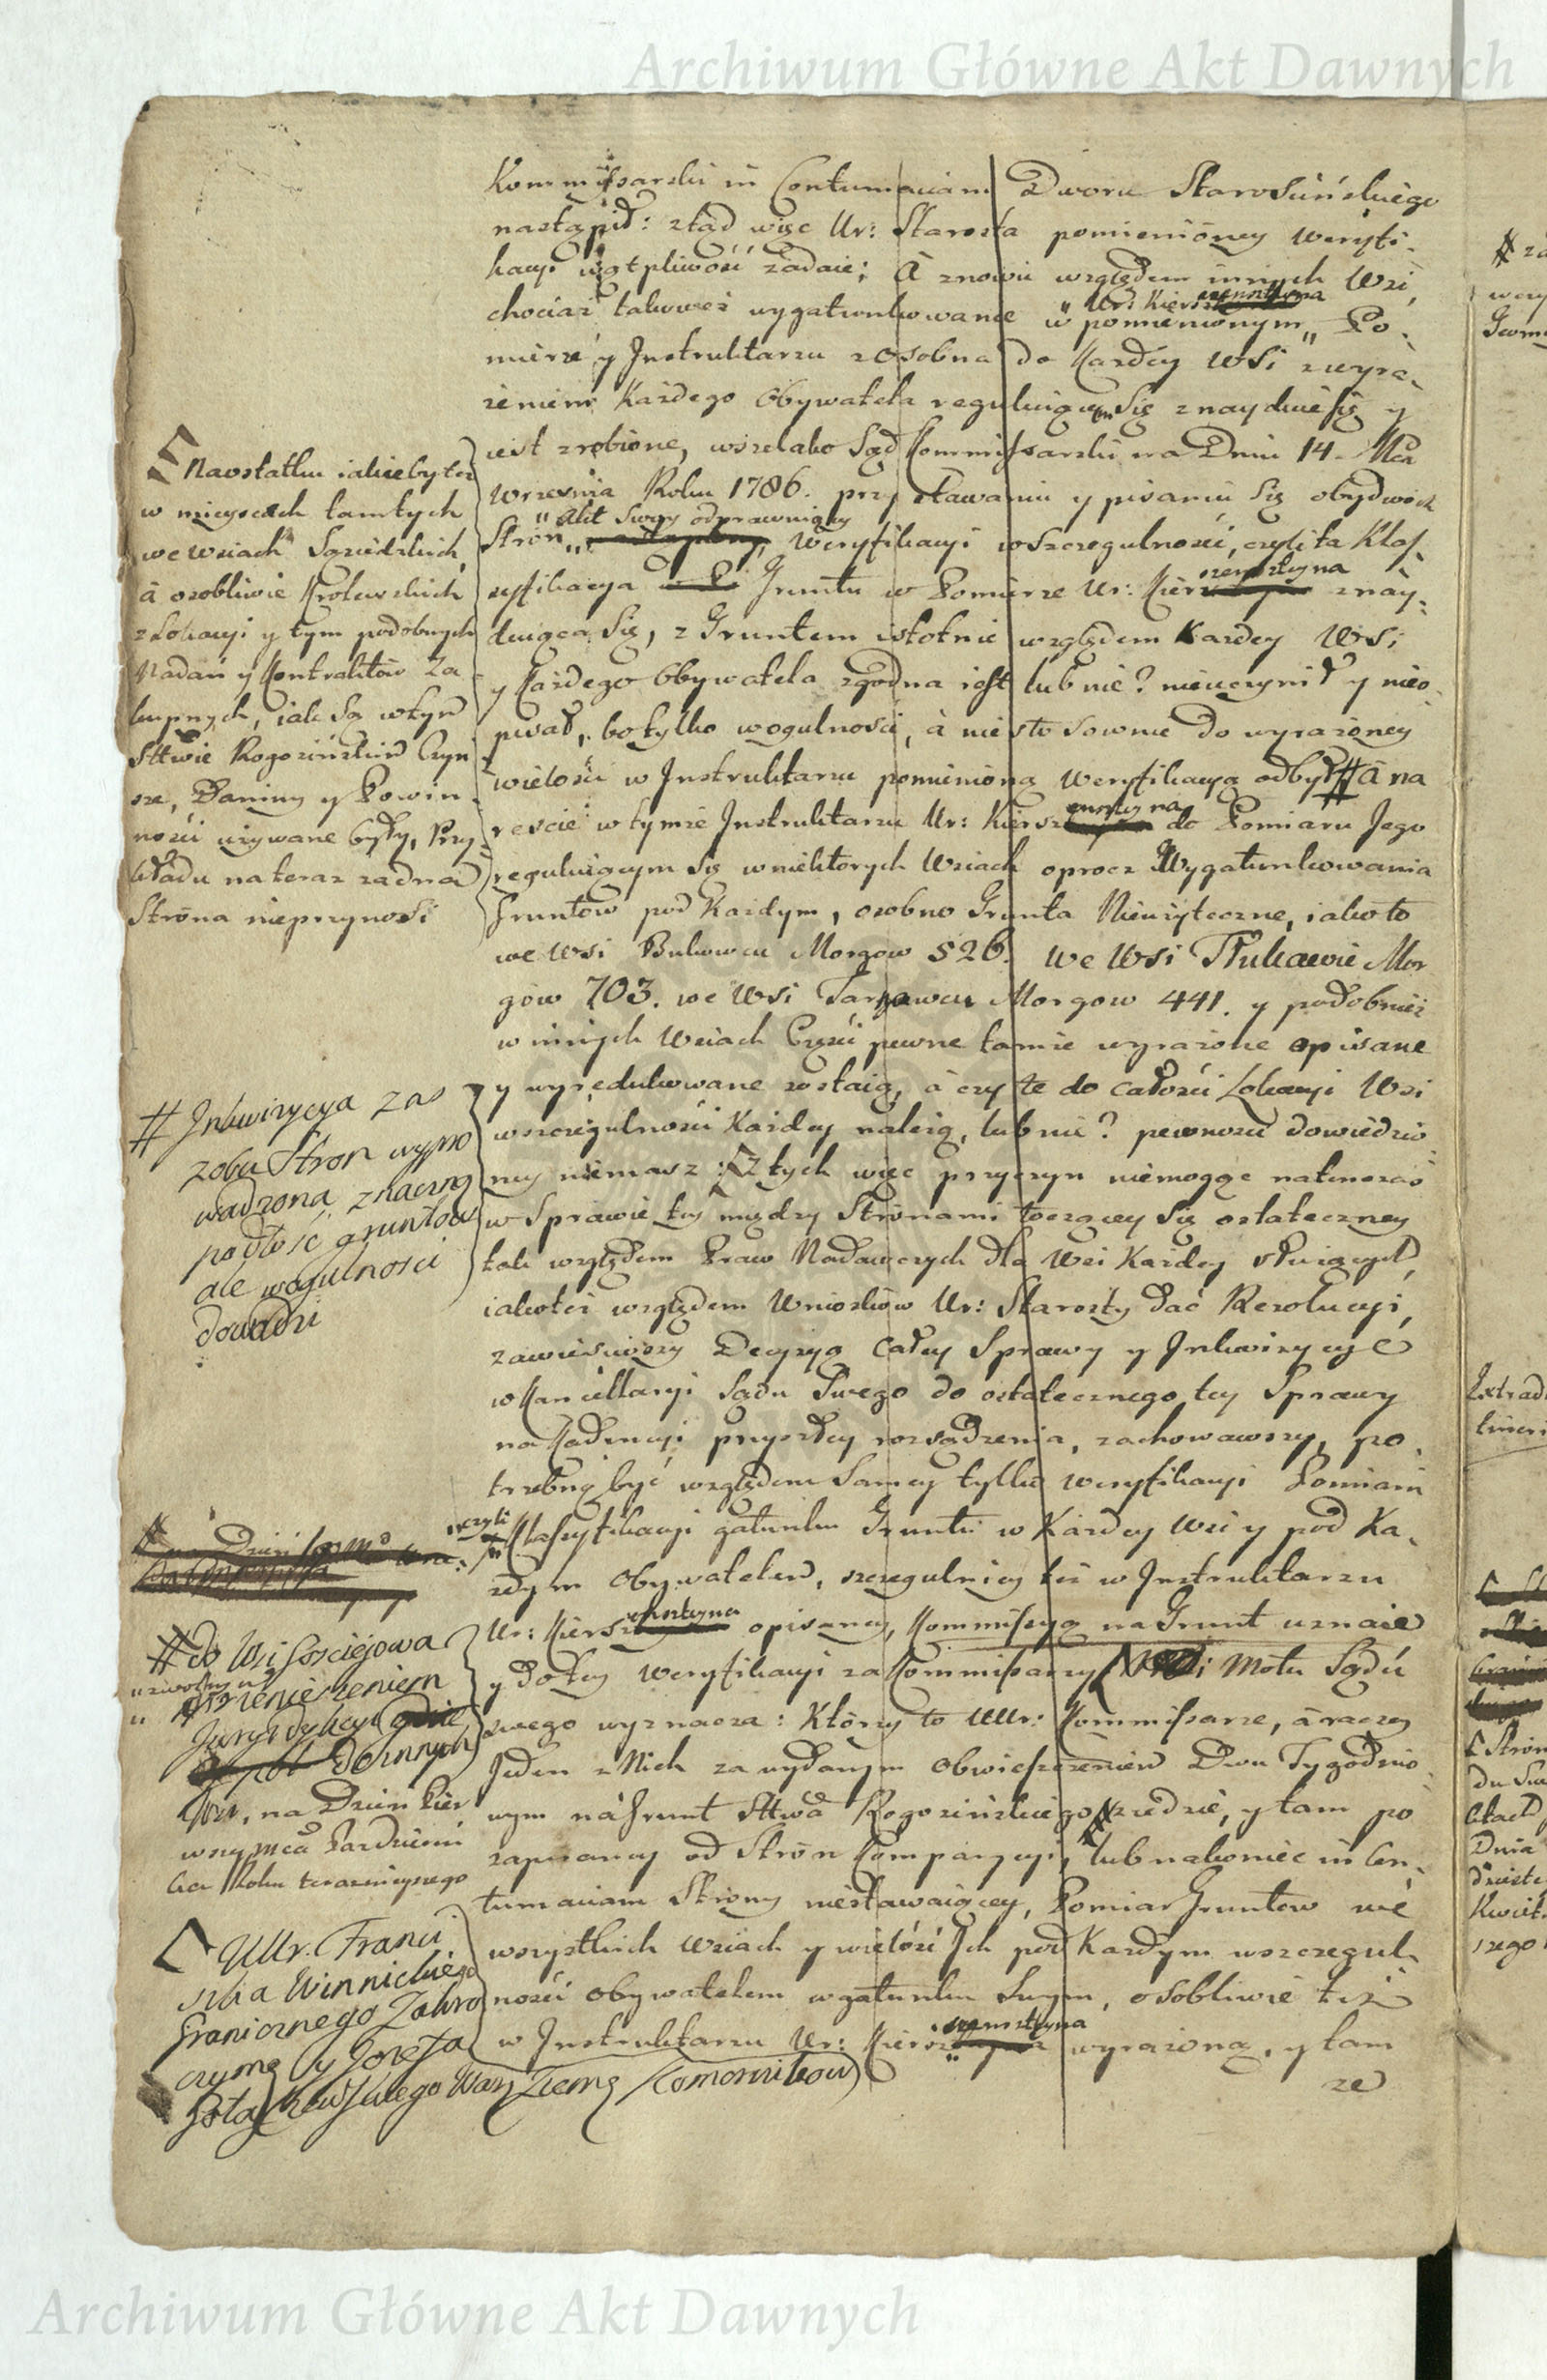 Archiwum Główne Akt Dawnych
Kommissarski in Contumaciam Dworu Starościńskiego
nastąpił: ztąd więc Ur: Starosta pomienioney weryfi-
kacyi wątpliwość zadaie; à znowu względem innych Wsi,
chociaż takoweż wygatunkowanie w pomienionym „ Ur: Kiersz „ Po-
mierze y Instruktarzu zosobna do Każdey Wsi z wyra-
żeniem Każdego Obywatela reguluiącym Się znayduie się y
iest zrobione, wszelako Sąd Kommissarski na Dniu 14. Mca
Września Roku 1786. przy stawaniu y pisaniu Się obydwóch
Stron „ Akt Swóy odprawuiący „ Weryfikacyi wszczegulności, czyli ta Klas-
syfikacya Gruntu w Pomierze Ur: Kierszensztyna znay-
duiąca Się, z Gruntem istotnie względem Każdey Wsi
y Każdego Obywatela zgodna iest lub nie? nieuczynił y nieo-
pisał, bo tylko wogulności, à nie stosownie do wyrażoney
wielości w Instruktarzu pomienioną Weryfikacyą odbył # à na
reście w tymże Instruktarzu Ur: Kierszensztyna do Pomiaru Jego
reguluiącym Się w niektorych Wsiach oprocz Wygatunkowania
Gruntów pod Każdym, osobno Grunta Nieużyteczne, iako to
we Wsi Bukowcu Morgow 526. we Wsi Tłukawie Mor
gów 703. we Wsi Tarnawcu Morgow 441. y podobnież
w innych Wsiach Części pewne tamże wyrażone opisane
y wyredukowane zostaią, à czy te do całości Lokacyi Wsi
wszczegulności Każdey należą, lub nie? pewności dowiedzio-
ney niemasz: [Z tych więc przyczyn niemogąc natenczas
w Sprawie tey między Stronami toczącey Się ostateczney
tak względem Praw Nadawczych dla Wsi Każdey służących,
iakoteż względem Wniosków Ur: Starosty dać Rezolucyi,
zawiesiwszy Decyzyą Całey Sprawy y Inkwizycye
w Kancellaryi Sądu Swego do ostatecznego tey Sprawy
na Kadencyi przyszłey rozsądzenia, zachowawszy, po-
trzebną być względem Samey tylko Weryfikacyi Pomiaru
czyli Klassyfikacyi gatunku Gruntu w Każdey Wsi y pod Ka-
żdym Obywatelem, szczegulniey też w Instruktarzu
Ur: Kierszensztyna opisaney, Kommissyą na Grunt uznaie
y do tey Weryfikacyi za Kommissarzy [ Moti Motu Sądu
swego wyznacza: Którzy to UUr: Kommissarze, à raczey
Jeden z Nich za wydanym obwieszczeniem Dwu Tygodnio-
wym na Grunt Sttwa Rogozińskiego # zjedzie, y tam po
zapisaney od Stron Comparycyi, lub nakoniec in Con-
tumaciam Strony niestawaiącey, Pomiar Gruntow we
wszystkich Wsiach y wielość Ich pod Każdym wszczegul-
ności Obywatelem w gatunku Swym, osobliwie też
w Instruktarzu Ur: Kierszensztyna wyrażoną, y tam
że
[ Naostatku iakieby też
w mieyscach tamtych
we Wsiach Sąsiedzkich,
à osobliwie Krolewskich
z Lokacyi y tym podobnych
Nadań y Kontraktów Za
kupnych, iak Są w tym
Sttwie Rogozińskim Czyn
sze, Daniny y Powin-
ności używane były, Przy-
kładu na teraz żadna
Strona nieprzynosi
# Inkwizycya zas
z obu Stron wypro
wadzona, znaczną
podłość gruntow
ale wogulnosci
dowodzi
# do Wsi Gościejowa
„ zwolnym
„ przeniesieniem
Juryzdykcyi
do innych
Wsi, na Dzień Pier
wszy mca Pazdzierni
ka Roku teraznieyszego
[ UUr. Franci
szka Winnickiego
Granicznego Zakro
czyms y Jozefa
Warz Ziems Komornikow
Archiwum Główne Akt Dawnych